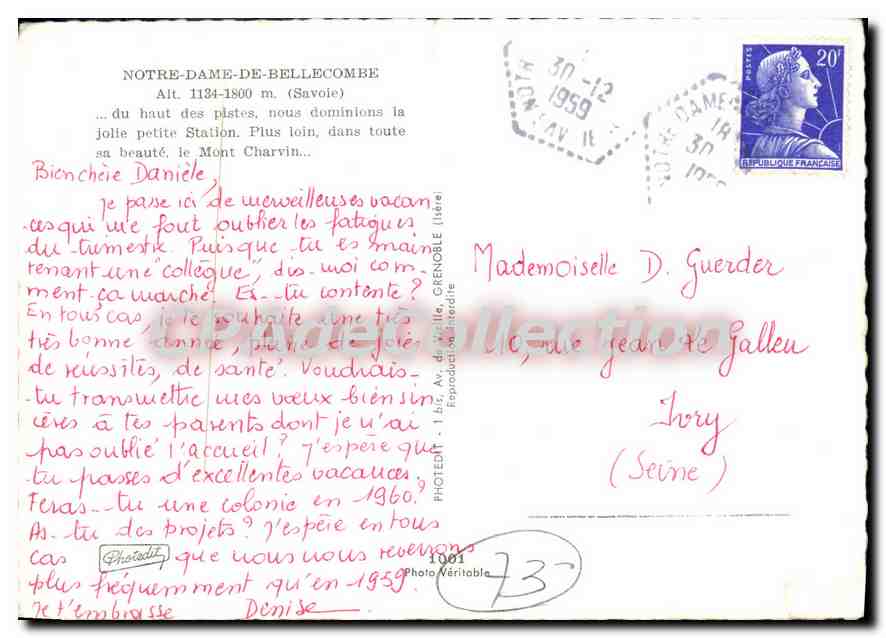 NOTRE-DAME-DE-BELLECOMBE
Alt. 1134-1800 m. (Savoie)
... du haut des pistes, nous dominions la
jolie petite Station. Plus loin, dans toute
sa beauté, le Mont Charvin...
Bien chère Danièle,
je passe ici de merveilleuses vacan
ces qui me font oublier les fatigues
du trimestre. Puisque tu es main
tenant une "collègue", dis-moi com-
ment ça marche. Es-tu contente ?
En tous cas, je te souhaite une très
très bonne année, pleine de joies
de réussites, de santé. Voudrais-
tu transmettre mes vœux bien sin
cères à tes parents dont je n'ai
pas oublié l'accueil ? J'espère que
tu passes d'excellentes vacances.
Feras-tu une colonie en 1960 ?
As-tu des projets ? J'espère en tous
cas que nous nous reverrons
plus fréquemment qu'en 1959.
Je t'embrasse Denise
Photedit
PHOTEDIT - 1 bis, Av. de Vizille, GRENOBLE (Isère)
Reproduction interdite
1001
Photo Véritable
73
30-12
1959
NOTRE DAME
18
30
POSTES
20F
REPUBLIQUE FRANÇAISE
Mademoiselle D. Guerder
10, rue Jean Le Galleu
Ivry
(Seine)
CPAdeCollection